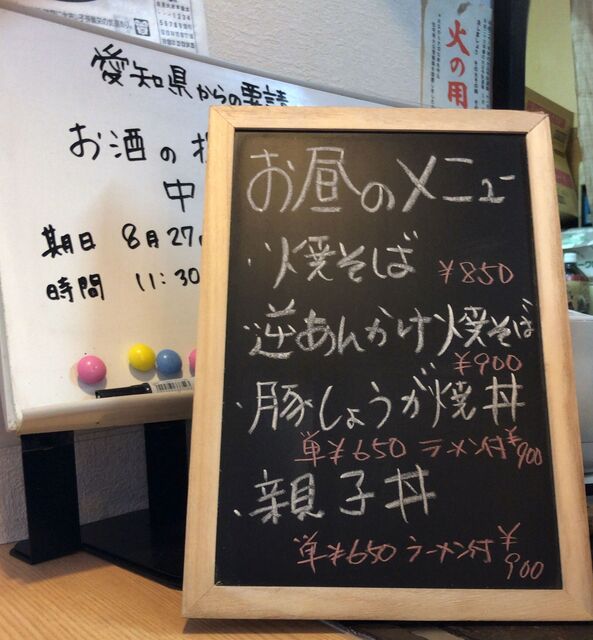 愛知県からの要請
お酒の
中
期日 8月27
時間 11:30
火の用
お昼のメニュー
・焼そば
¥850
・逆あんかけ焼そば
¥900
・豚しょうが焼丼
単¥650 ラーメン付¥900
・親子丼
単¥650 ラーメン付¥900